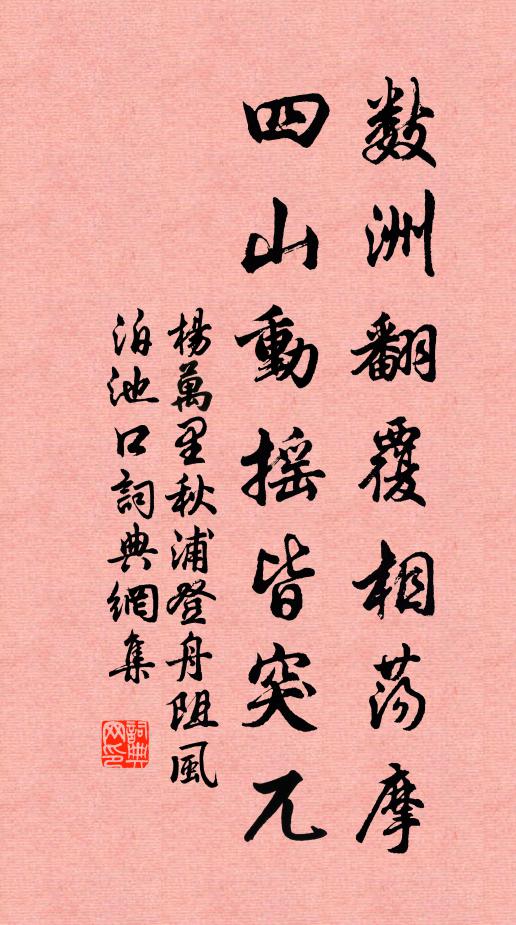 數洲翻覆相蕩摩
四山動搖皆突兀
楊萬里秋浦登舟阻風
泊池口詞典網集
詞典网印